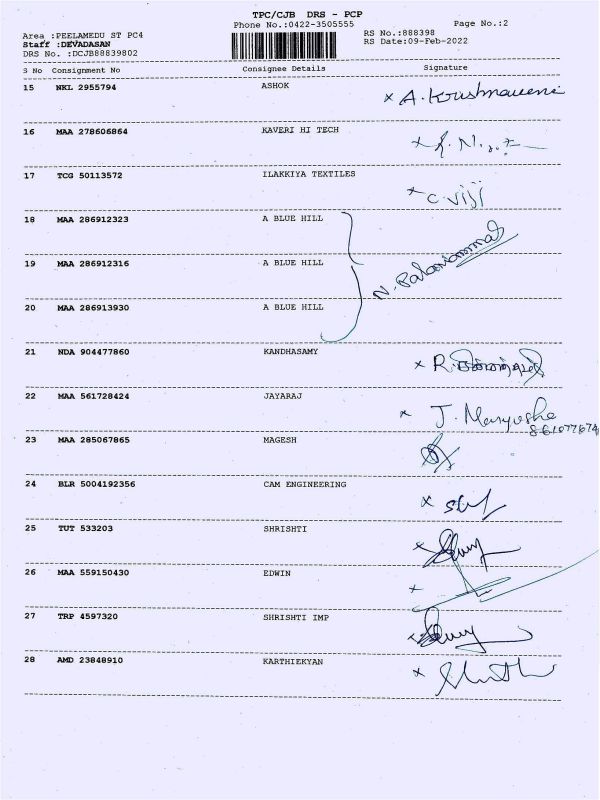 TPC/CJB DRS - PCP
Phone No.:0422-3505555 Page No.:2
Area :PEELAMEDU ST PC4 RS No.:888398
Staff :DEVADASAN RS Date:09-Feb-2022
DRS No. :DCJB88839802
S No Consignment No Consignee Details Signature
15 NKL 2955794 ASHOK
x A. Krushnaveni
16 MAA 278606864 KAVERI HI TECH
x
17 TCG 50113572 ILAKKIYA TEXTILES
x C. Viji
18 MAA 286912323 A BLUE HILL
19 MAA 286912316 A BLUE HILL
N. Palaniammal
20 MAA 286913930 A BLUE HILL
21 NDA 904477860 KANDHASAMY
x R.
22 MAA 561728424 JAYARAJ
x J.
23 MAA 285067865 MAGESH
24 BLR 5004192356 CAM ENGINEERING
x
25 TUT 533203 SHRISHTI
x
26 MAA 559150430 EDWIN
x
27 TRP 4597320 SHRISHTI IMP
28 AMD 23848910 KARTHIEKYAN
x